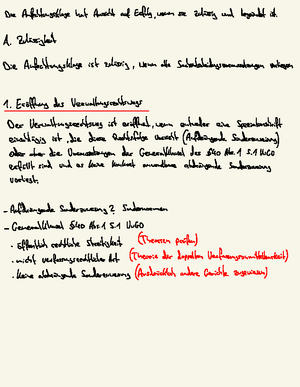 Die Anfechtungsklage hat Aussicht auf Erfolg, wenn sie zulässig und begründet ist.
A. Zulässigkeit
Die Anfechtungsklage ist zulässig, wenn alle Sachentscheidungsvoraussetzungen vorliegen
1. Eröffnung des Verwaltungsrechtswegs
Der Verwaltungsrechtsweg ist eröffnet, wenn entweder eine Spezialvorschrift
einschlägig ist, die diese Rechtsfolge vorsieht (Aufdrängende Sonderzuweisung)
oder aber die Voraussetzungen der Generalklausel des §40 Abs. 1 S.1 VwGO
erfüllt sind und es keine konkret anwendbare abdrängende Sonderzuweisung
vorliegt.
- Aufdrängende Sonderzuweisung? Sondernormen
- Generalklausel §40 Abs. 1 S.1 VwGO
· öffentlich rechtliche Streitigkeit (Theorien prüfen)
· nicht verfassungsrechtlicher Art (Theorie der doppelten Verfassungsunmittelbarkeit)
· keine abdrängende Sonderzuweisung (Ausdrücklich andere Gerichte zugewiesen)